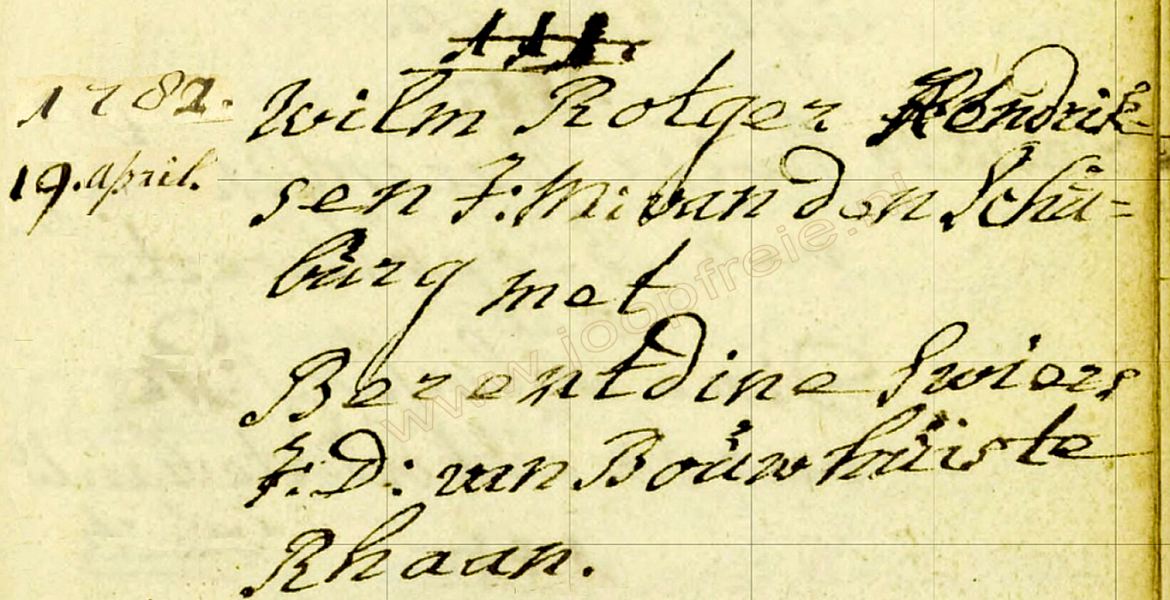 111.
1782. Wilm Rotger Hendrik-
19. april. sen J: M: van den Schü=
bürg met
Berentdine Swiers
J: D: van Boüwhüis te
Rhaan.
www.joopfreie.nl